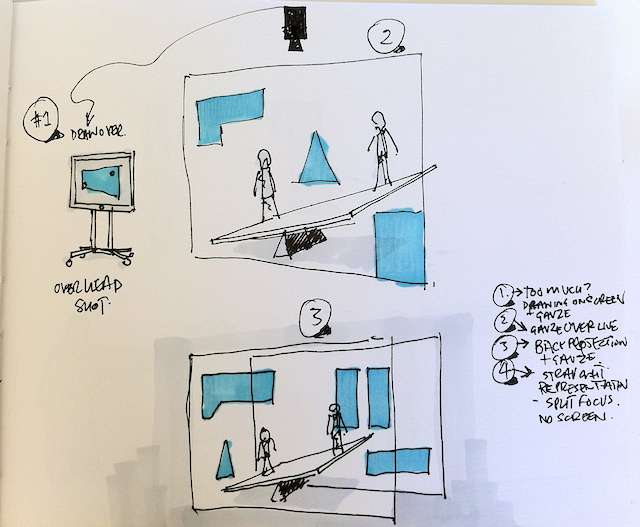 2
#1
DRAWOVER.
OVERHEAD
SHOT.
3
1 → TOO MUCH?
DRAWING ON SCREEN
+ GAUZE
2 → GAUZE OVER LIVE
3 → BACK PROJECTION
+ GAUZE.
4 → STRAIGHT
REPRESENTATION
- SPLIT FOCUS.
NO SCREEN.